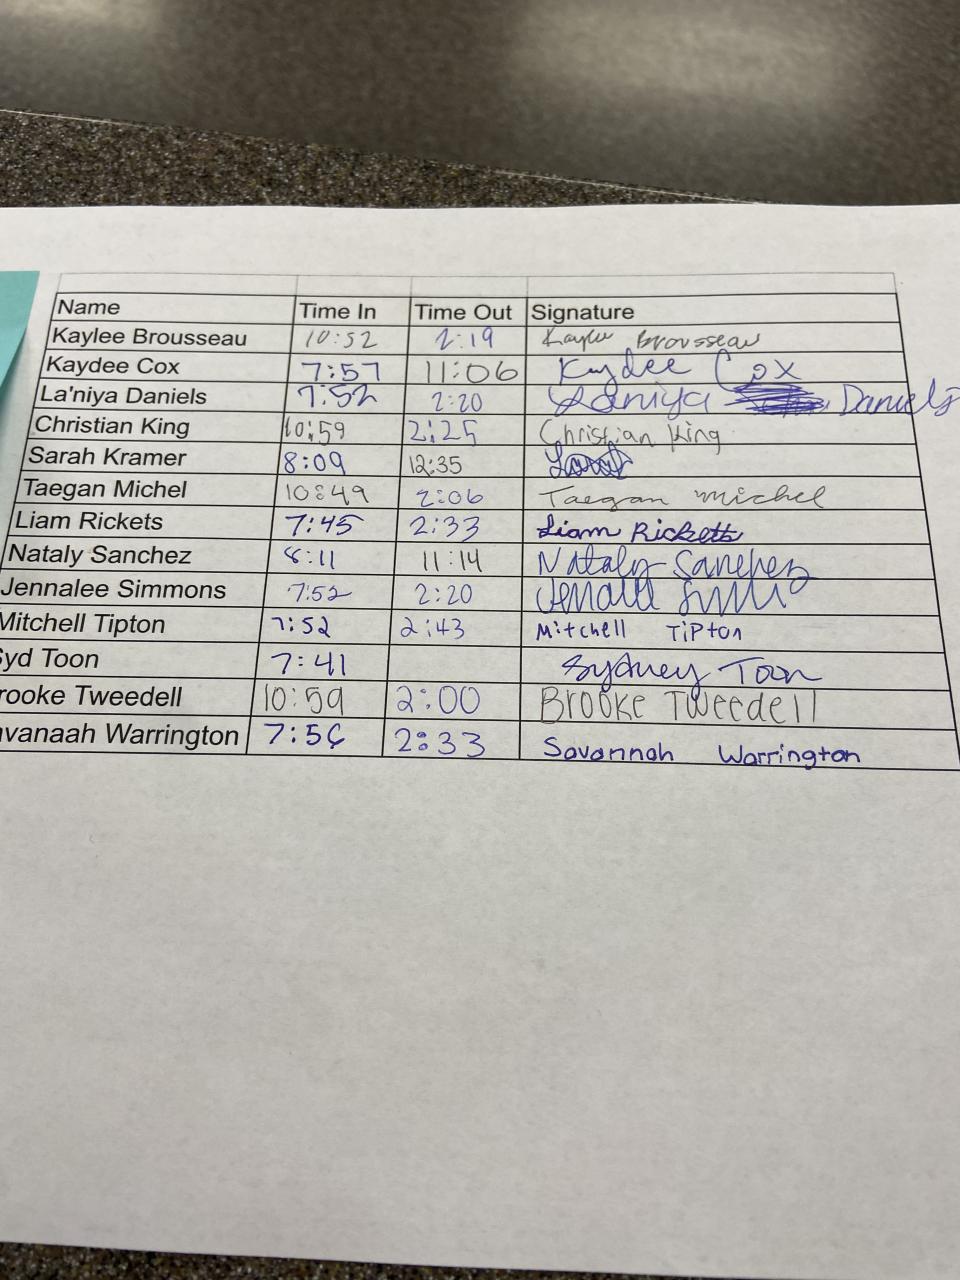 Name Time In Time Out Signature
Kaylee Brousseau 10:52 2:19 Kaylee Brousseau
Kaydee Cox 7:57 11:06 Kaydee Cox
La'niya Daniels 7:52 2:20 Laniya Daniels
Christian King 10:59 2:25 Christian King
Sarah Kramer 8:09 12:35
Taegan Michel 10:49 2:06 Taegan Michel
Liam Rickets 7:45 2:33 Liam Ricketts
Nataly Sanchez 8:11 11:14 Nataly Sanchez
Jennalee Simmons 7:52 2:20
Mitchell Tipton 7:52 2:43 Mitchell Tipton
Syd Toon 7:41 Sydney Toon
rooke Tweedell 10:59 2:00 Brooke Tweedell
avanaah Warrington 7:56 2:33 Savannah Warrington